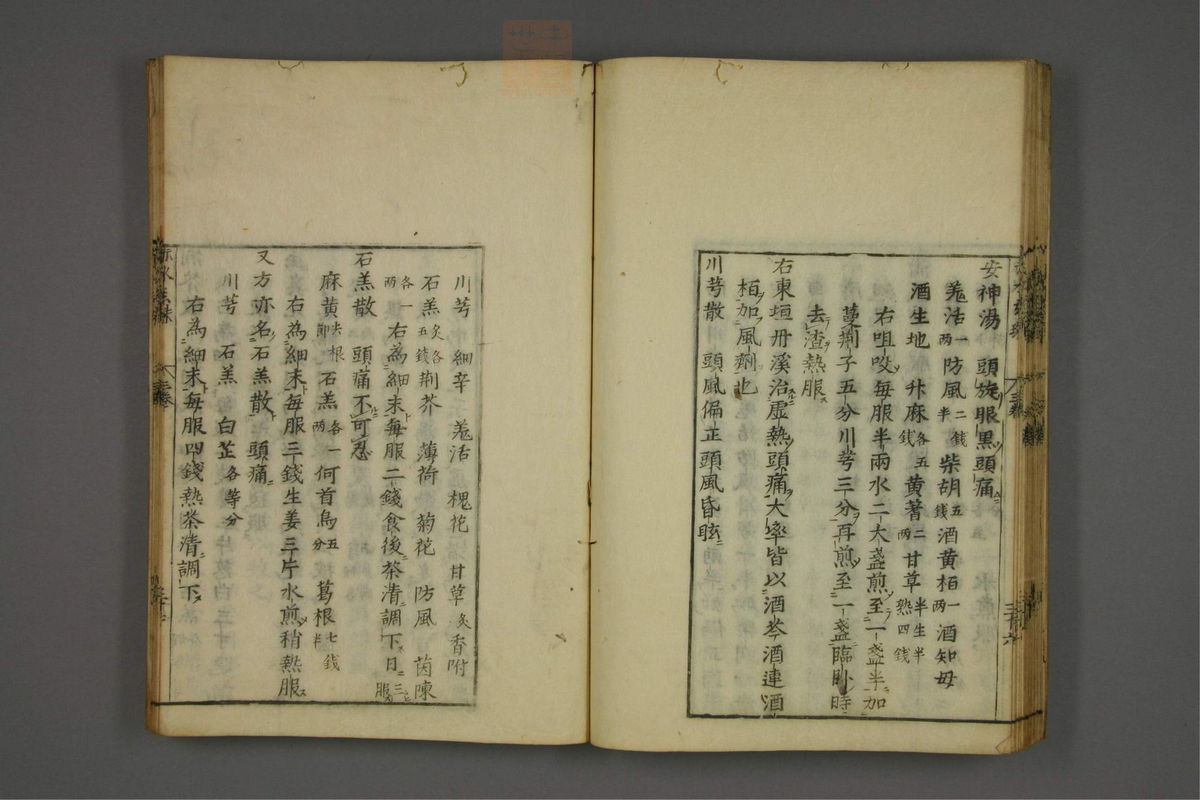 安神湯 頭旋眼黒頭痛
羗活一両防風二錢半柴胡五錢酒黄栢一両酒知母
酒生地 升麻各五錢黄蓍二両甘草半生半熟四錢
右咀㕮每服半兩水二大盞煎至一盞半加
蔓荆子五分川芎三分再煎至一盞臨卧時
去渣熱服
右東垣丹溪治虚熱頭痛大率皆以酒芩酒連酒
栢加風劑也
川芎散 頭風偏正頭風昏眩
三十六
川芎 細辛 羗活 槐花 甘草炙香附
石羔炙各五錢荆芥 薄荷 菊花 防風 茵陳
各一両 右為細末每服二錢食後茶清調下日三服
石羔散 頭痛不可忍
麻黄去根節石羔各一両何首烏五分 葛根七錢半
右為細末每服三錢生姜三片水煎稍熱服
又方亦名石羔散 頭痛
川芎 石羔 白芷各等分
右為細末每服四錢熱茶清調下